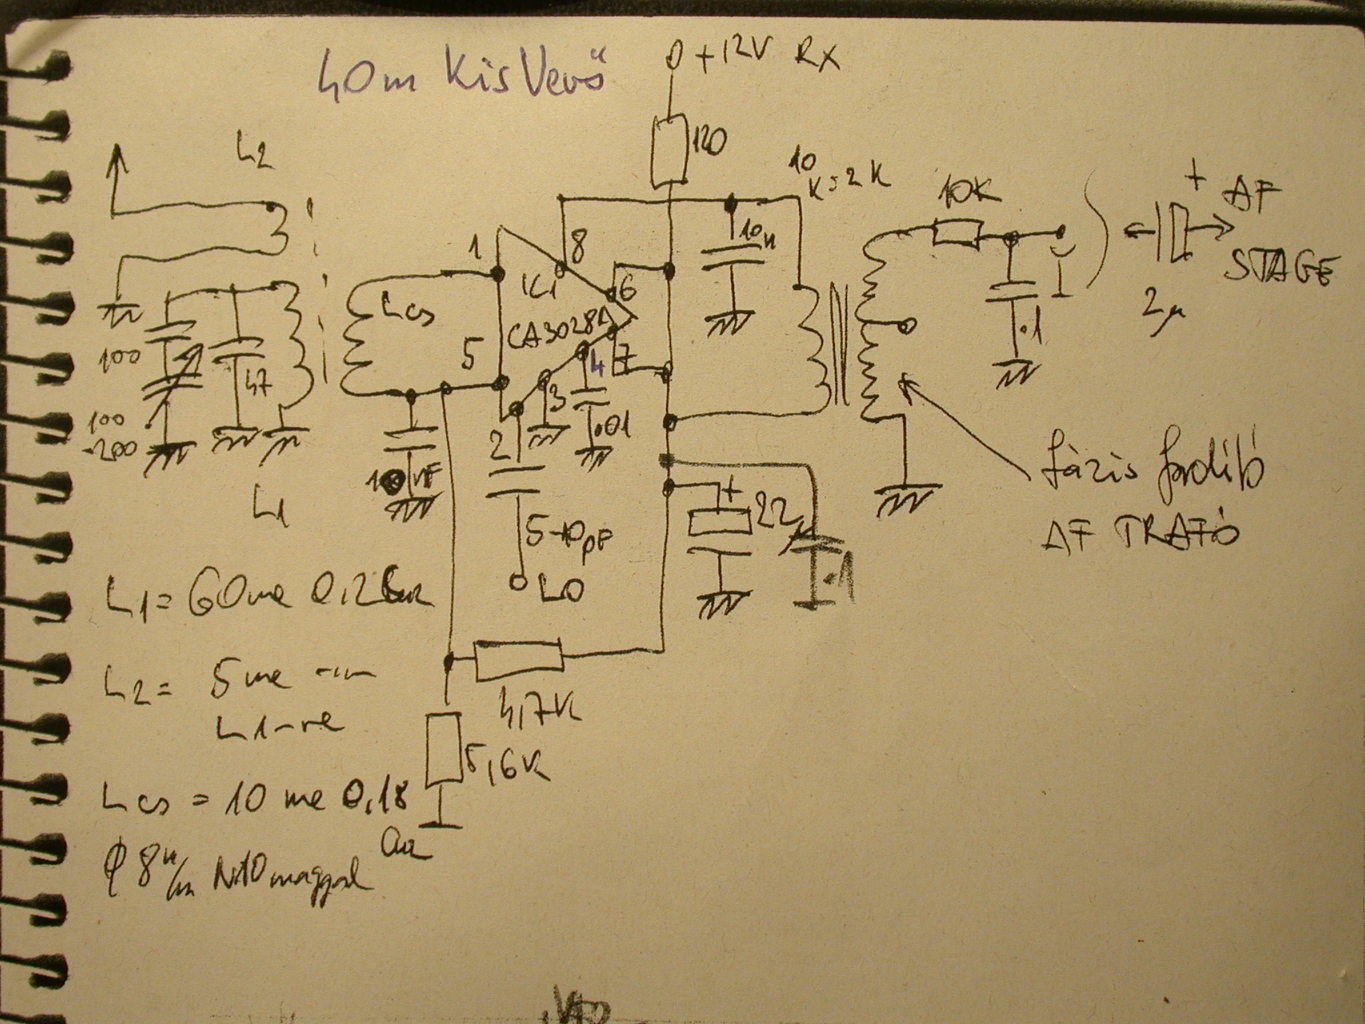 40m Kis Vevő
+12V RX
120
L2
10K:2K
10K
+ AF
STAGE
2µ
1
8
IC1
6
10n
Lcs
CA3028A
.1
5
4
7
100
47
3
.01
100
-200
2
100nF
L1
5-10pF
LO
+
22µ
.1
fázis fordító
AF TRAFÓ
L1= 60me 0,2
L2= 5me
L1-re
4,7K
5,6K
Lcs = 10 me 0,18
φ 8 m/m N10 maggal